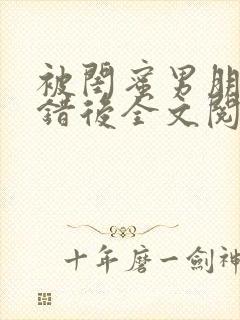 被閨蜜男朋
錯後全文閱
十年磨一劍神